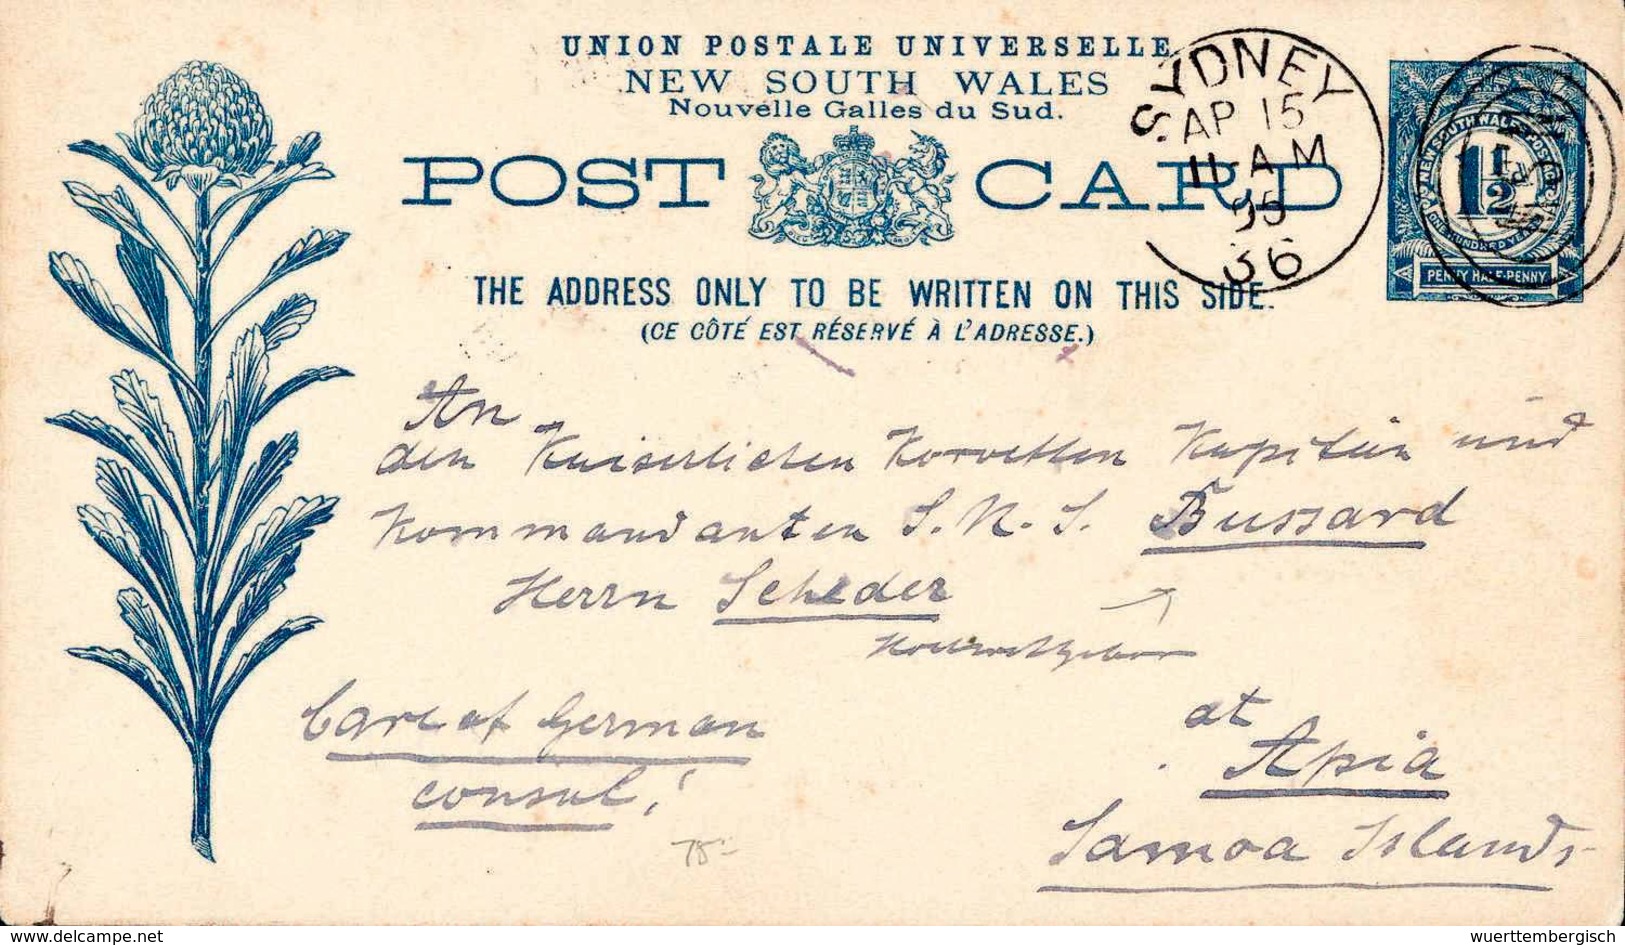 UNION POSTALE UNIVERSELLE
NEW SOUTH WALES
Nouvelle Galles du Sud.
POST CARD
SYDNEY
AP 15
11 AM
95
36
NEW SOUTH WALES POST
ONE HUNDRED YEARS
1 1/2
PENNY HALF-PENNY
THE ADDRESS ONLY TO BE WRITTEN ON THIS SIDE.
(CE CÔTÉ EST RÉSERVÉ À L'ADRESSE.)
An
den Kaiserlichen Korvetten Kapitän und
Kommandanten S. M. S. Bussard
Herrn Scheder
Care of German
consul!
at
Apia
Samoa Islands
75.-
delcampe.net
wuerttembergisch